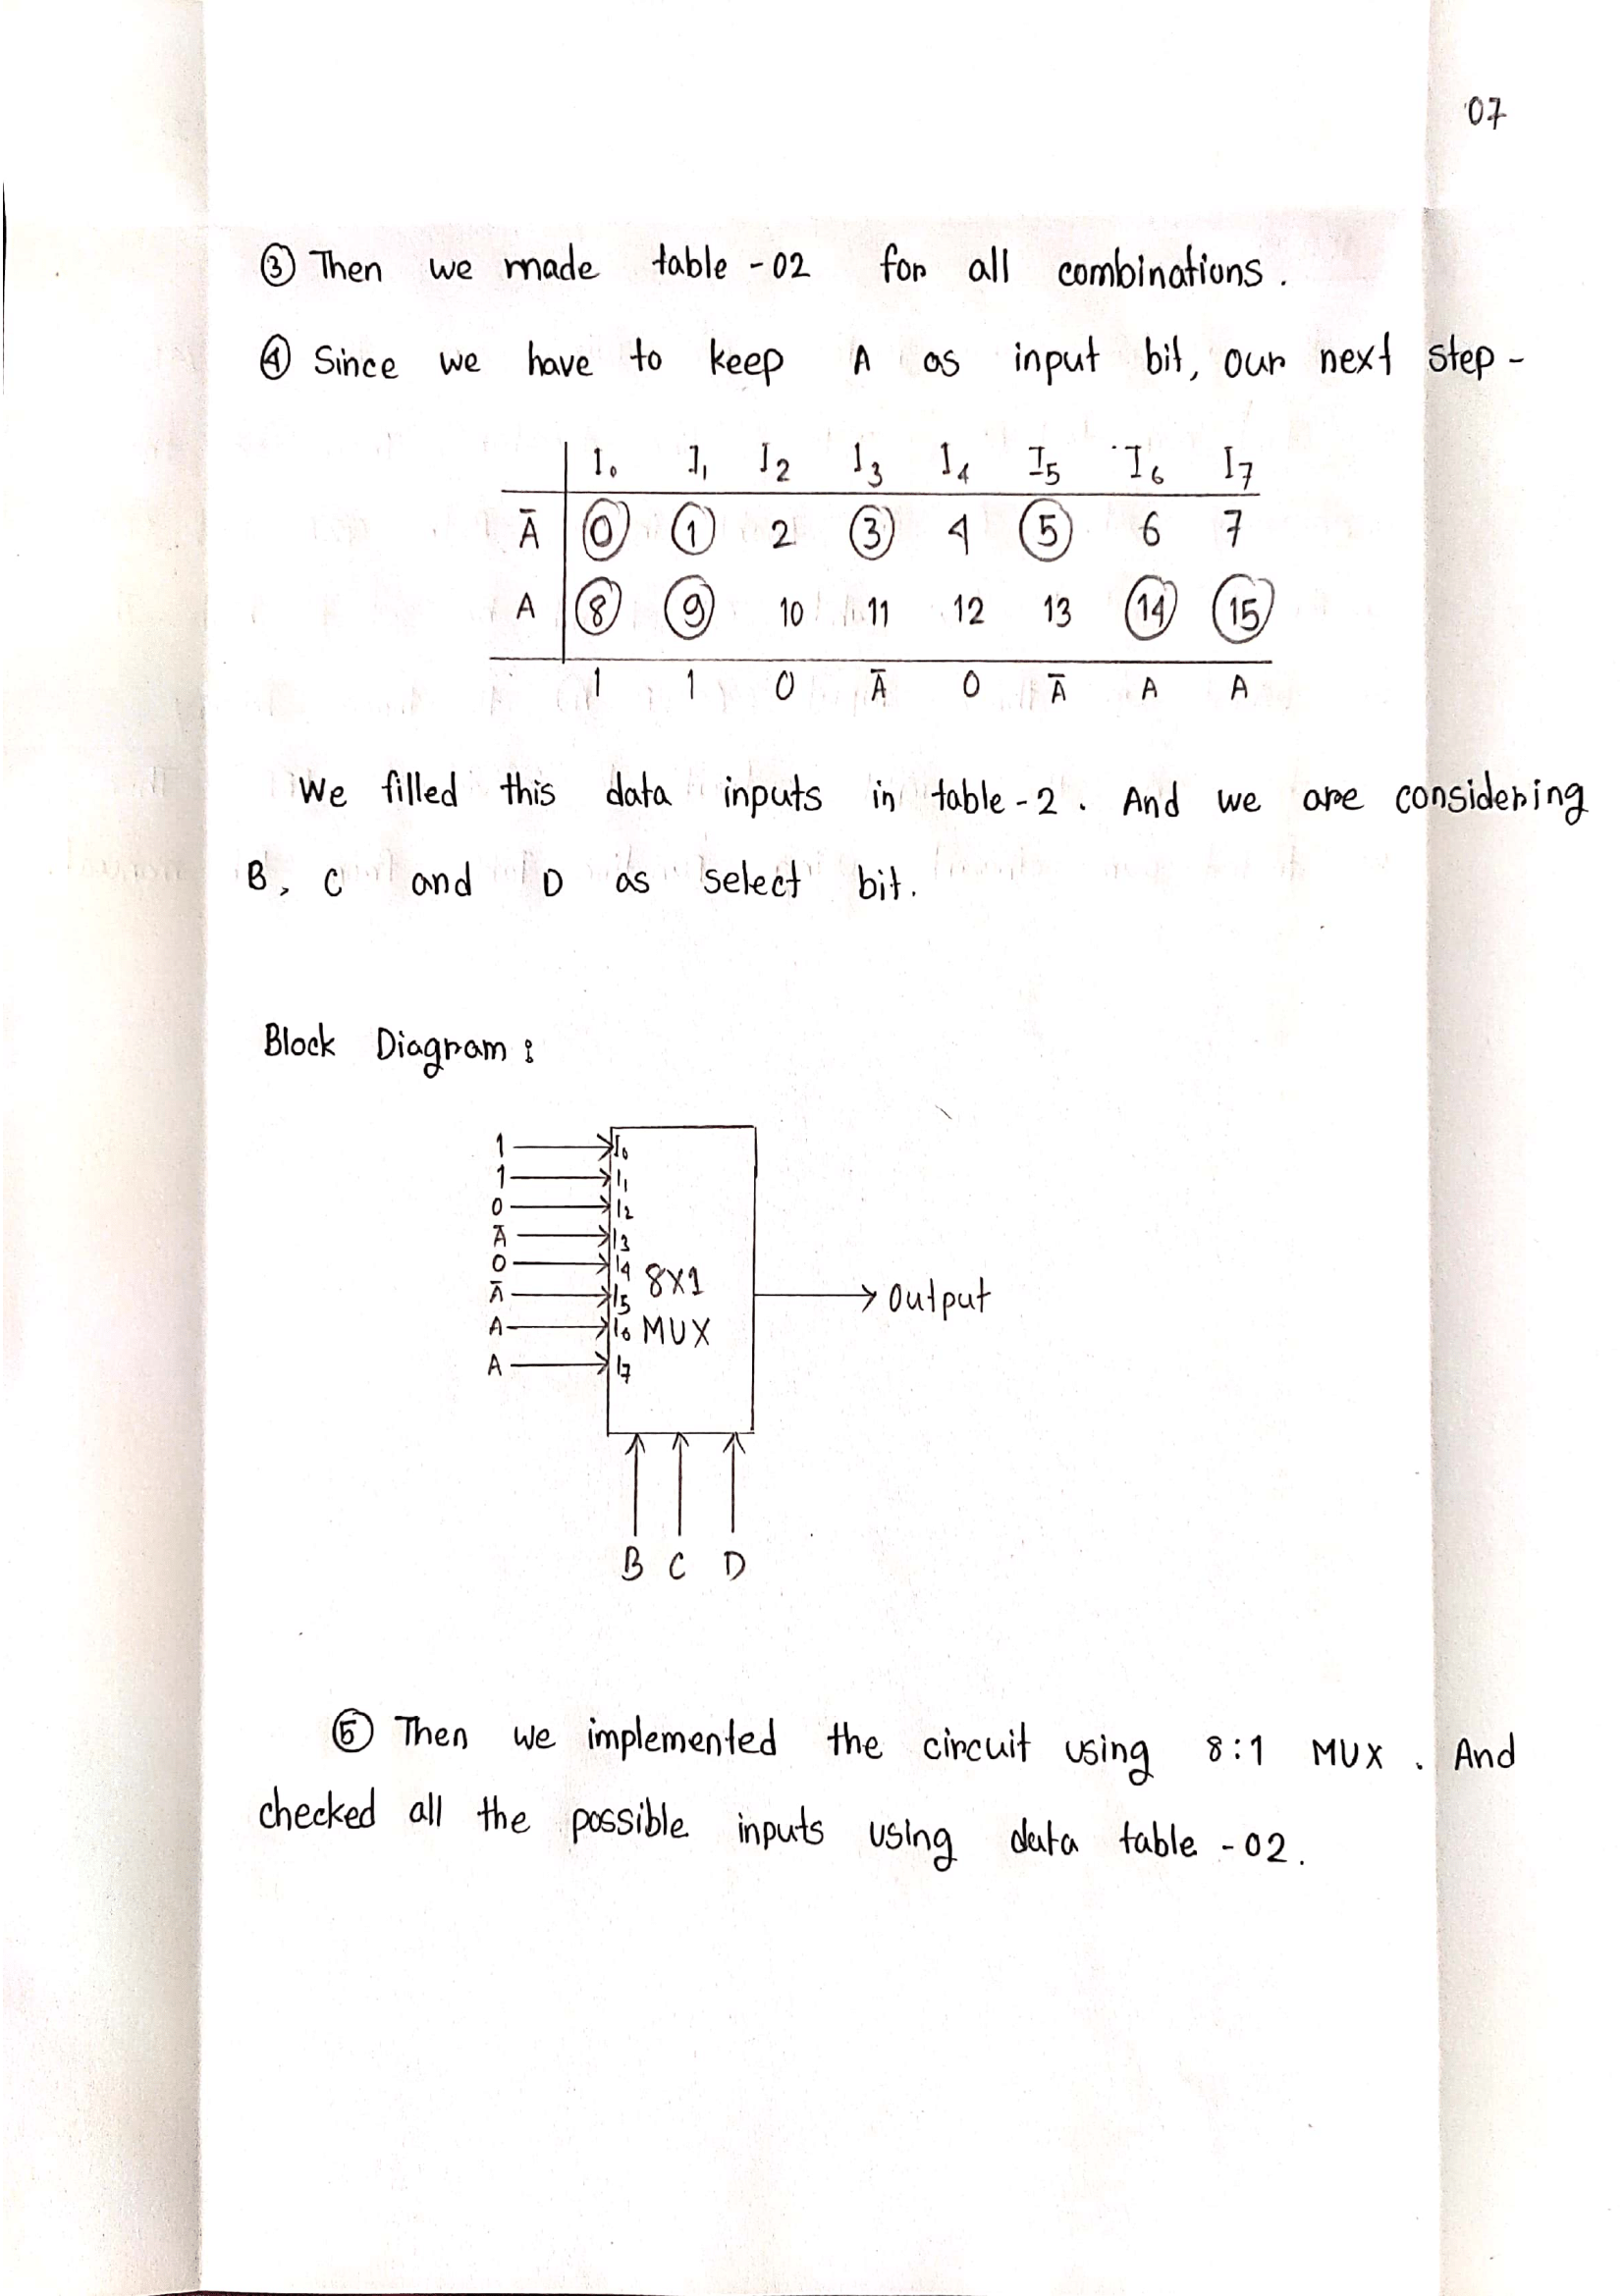 07
③ Then we made table - 02 for all combinations.
④ Since we have to keep A as input bit, our next step -
I₀ I₁ I₂ I₃ I₄ I₅ I₆ I₇
Ā 0 1 2 3 4 5 6 7
A 8 9 10 11 12 13 14 15
1 1 0 Ā 0 Ā A A
We filled this data inputs in table - 2. And we are considering
B, C and D as select bit.
Block Diagram :
1 I₀
1 I₁
0 I₂
Ā I₃
0 I₄
8X1
Ā I₅
A I₆
MUX
A I₇
Output
B C D
⑤ Then we implemented the circuit using 8:1 MUX. And
checked all the possible inputs using data table - 02.